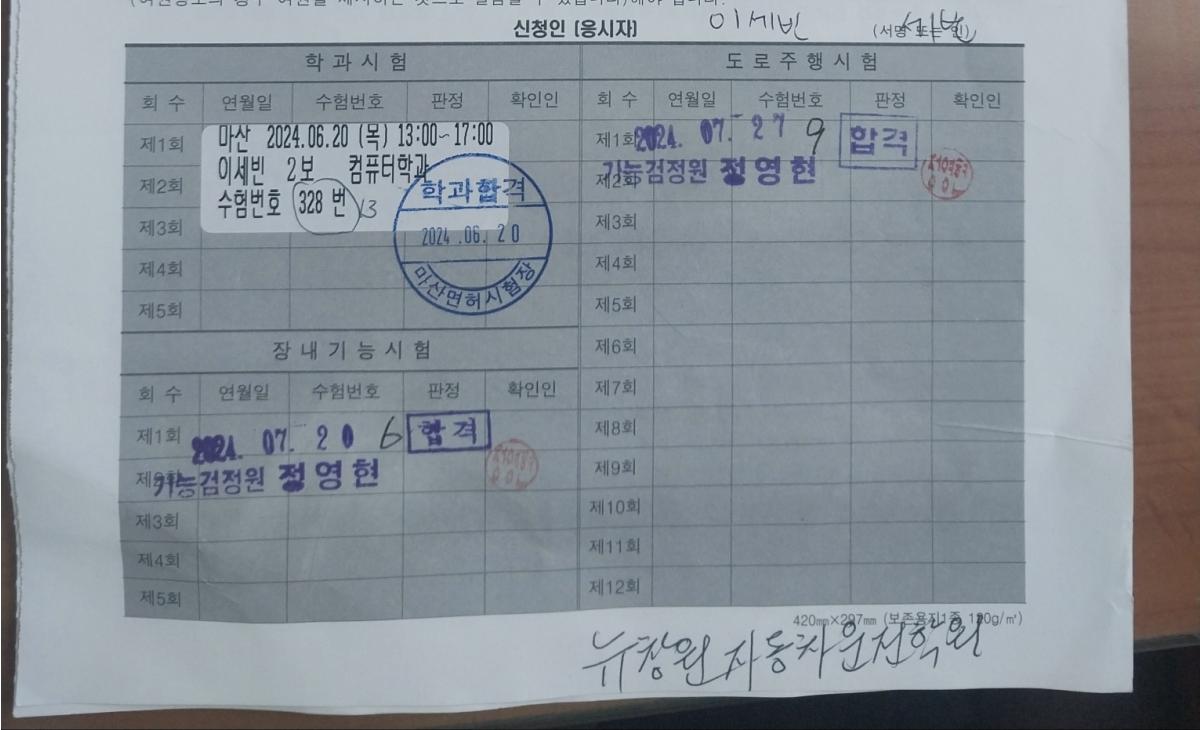 신청인 (응시자) 이세빈 (서명 또는 인) 세빈
학 과 시 험
회 수 연월일 수험번호 판정 확인인
제1회
마산 2024.06.20 (목) 13:00~17:00
이세빈 2보 컴퓨터학과
수험번호 328 번 13
제2회
제3회
제4회
제5회
학과합격
2024.06.20
마산면허시험장
장 내 기 능 시 험
회 수 연월일 수험번호 판정 확인인
제1회 2024. 07. 20 6 합격
제2회
기능검정원 정영현
제3회
제4회
제5회
도 로 주 행 시 험
회 수 연월일 수험번호 판정 확인인
제1회 2024. 07. 27 9 합격
제2회
기능검정원 정영현
제3회
제4회
제5회
제6회
제7회
제8회
제9회
제10회
제11회
제12회
420㎜×297㎜ (보존용지1종 120g/㎡)
뉴창원자동차운전학원